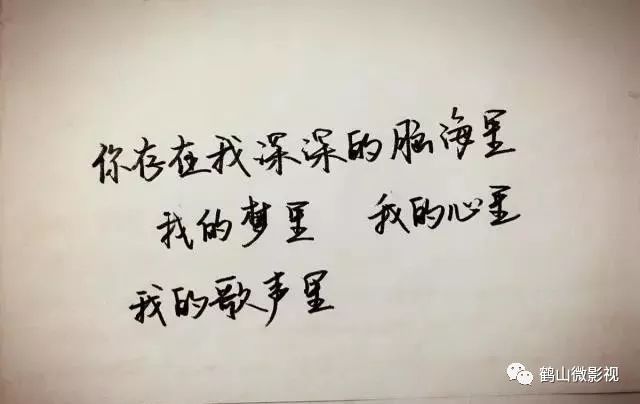 你存在我深深的脑海里
我的梦里 我的心里
我的歌声里
鹤山微影视